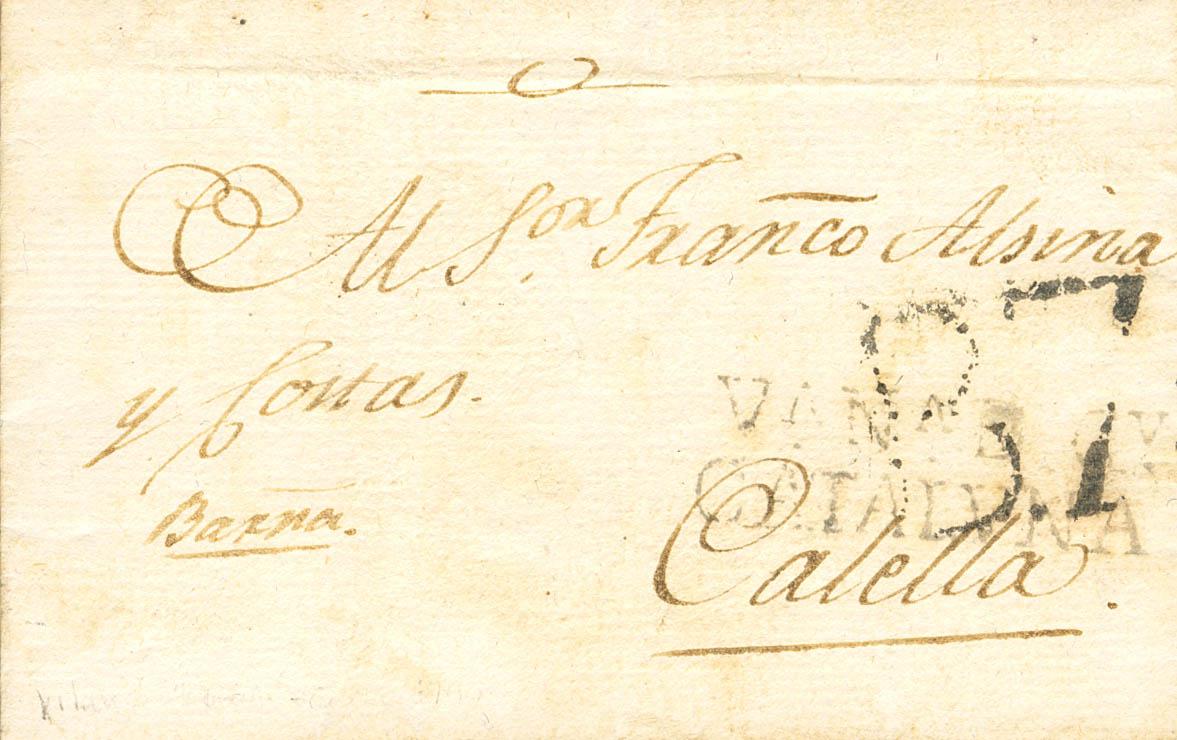 Al S.or Franco Alsina
y Costas.
Barna.
CATALUÑA
Calella.